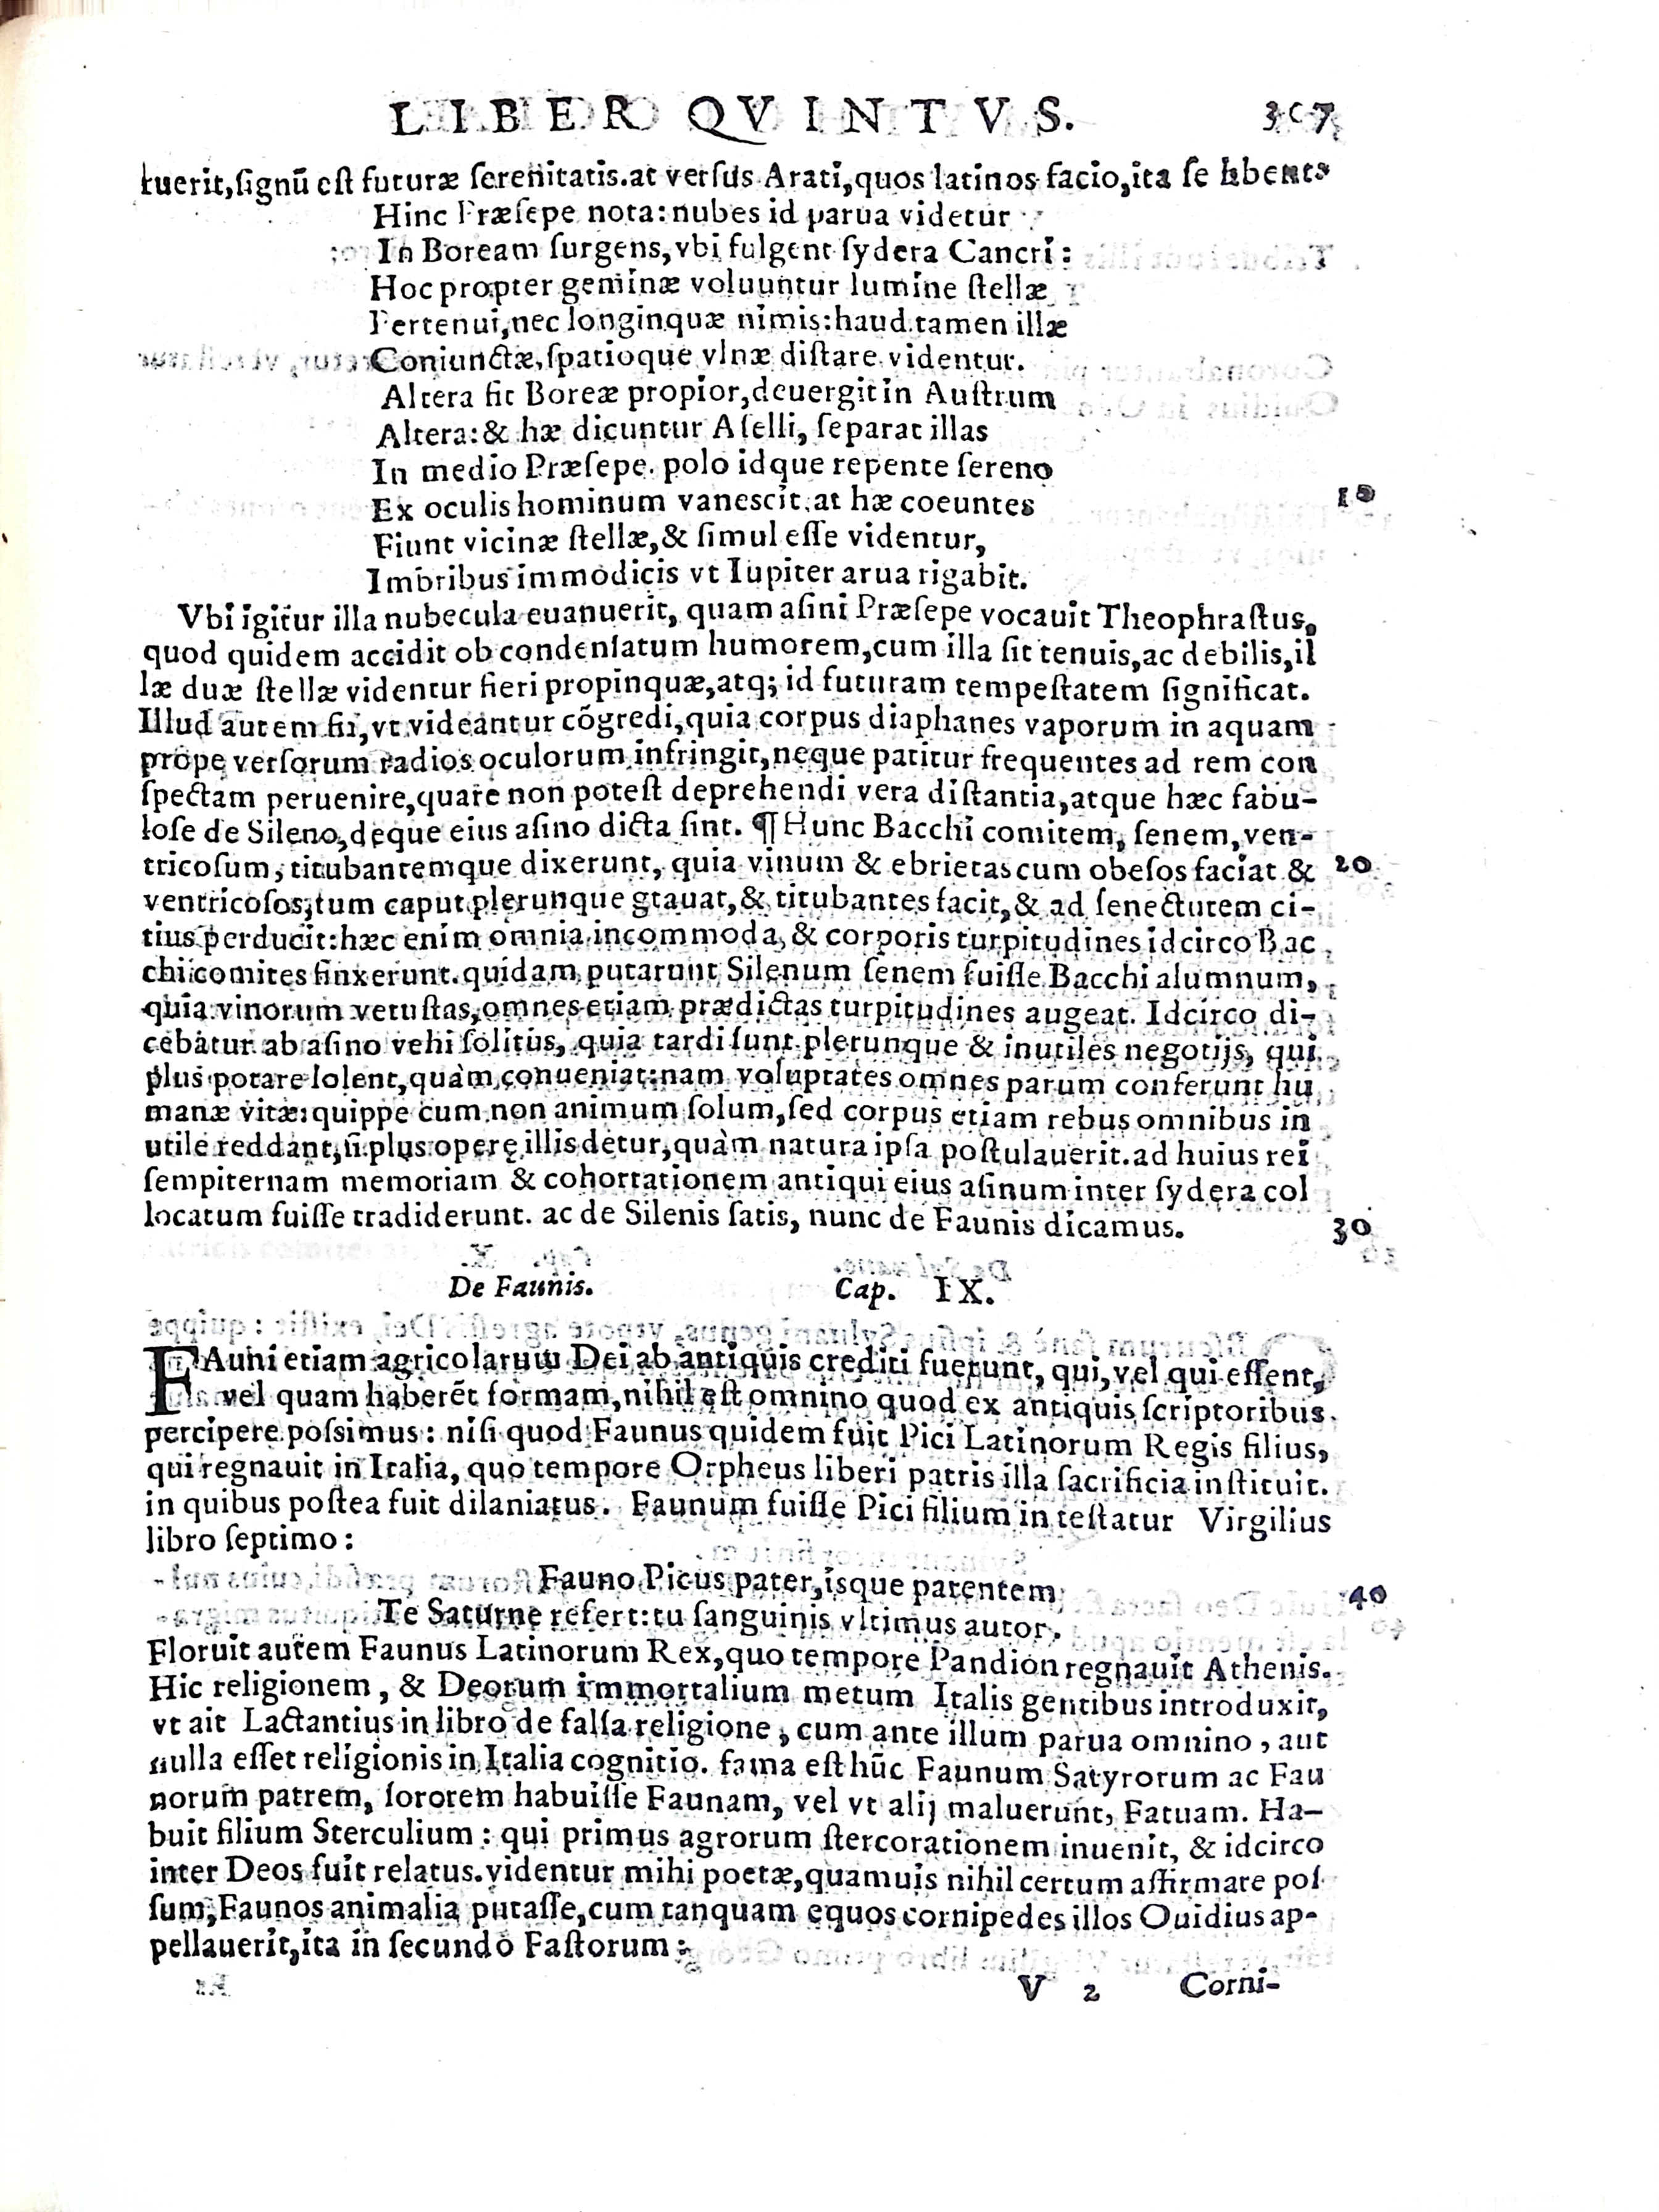 LIBER QVINTVS. 307
tuerit,ſignū eſt futuræ ſerenitatis.at verſus Arati,quos latinos facio,ita ſe hbents
Hinc Præſepe nota:nubes id parua videtur
In Boream ſurgens,vbi fulgent ſydera Cancri:
Hoc propter geminæ voluuntur lumine ſtellæ
Pertenui,nec longinquæ nimis:haud tamen illæ
Coniunctæ,ſpatioque vlnæ diſtare videntur.
Altera ſit Boreæ propior,deuergit in Auſtrum
Altera:& hæ dicuntur Aſelli, ſeparat illas
In medio Præſepe. polo idque repente ſereno
Ex oculis hominum vanescit.at hæ coeuntes 10
Fiunt vicinæ ſtellæ,& ſimul eſſe videntur,
Imbribus immodicis vt Iupiter arua rigabit.
Vbi igitur illa nubecula euanuerit, quam aſini Præſepe vocauit Theophraſtus,
quod quidem accidit ob condenſatum humorem,cum illa ſit tenuis,ac debilis,il
læ duæ ſtellæ videntur fieri propinquæ,atq; id futuram tempeſtatem ſignificat.
Illud autem fit,vt videantur cōgredi,quia corpus diaphanes vaporum in aquam
prope verſorum radios oculorum infringit,neque patitur frequentes ad rem con
ſpectam peruenire,quare non poteſt deprehendi vera diſtantia,atque hæc fabu-
loſe de Sileno,deque eius aſino dicta ſint. ¶ Hunc Bacchi comitem, ſenem,ven-
tricoſum, titubantemque dixerunt, quia vinum & ebrietas cum obeſos faciat & 20
ventricoſos,tum caput plerunque gtauat,& titubantes facit,& ad ſenectutem ci-
tius perducit:hæc enim omnia incommoda, & corporis turpitudines idcirco Bac
chi comites finxerunt.quidam putarunt Silenum ſenem fuiſſe Bacchi alumnum,
quia vinorum vetuſtas,omnes etiam prædictas turpitudines augeat. Idcirco di-
cebatur ab aſino vehi ſolitus, quia tardi ſunt plerunque & inutiles negotijs, qui
plus potare ſolent,quàm conueniat:nam voluptates omnes parum conferunt hu
manæ vitæ:quippe cum non animum ſolum,ſed corpus etiam rebus omnibus in
utile reddant,ſi plus operę illis detur,quàm natura ipſa poſtulauerit.ad huius rei
ſempiternam memoriam & cohortationem antiqui eius aſinum inter ſydera col
locatum fuiſſe tradiderunt. ac de Silenis ſatis, nunc de Faunis dicamus. 30
De Faunis. Cap. IX.
FAuni etiam agricolarum Dei ab antiquis crediti fuerunt, qui, vel qui eſſent,
vel quam haberēt formam,nihil eſt omnino quod ex antiquis ſcriptoribus
percipere poſsimus: niſi quod Faunus quidem fuit Pici Latinorum Regis filius,
qui regnauit in Italia, quo tempore Orpheus liberi patris illa ſacrificia inſtituit.
in quibus poſtea fuit dilaniatus. Faunum fuiſſe Pici filium in teſtatur Virgilius
libro ſeptimo:
Fauno Picus pater,isque parentem 40
Te Saturne refert:tu ſanguinis vltimus autor.
Floruit autem Faunus Latinorum Rex,quo tempore Pandion regnauit Athenis.
Hic religionem, & Deorum immortalium metum Italis gentibus introduxit,
vt ait Lactantius in libro de falſa religione, cum ante illum parua omnino, aut
nulla eſſet religionis in Italia cognitio. fama eſt hūc Faunum Satyrorum ac Fau
norum patrem, ſororem habuiſſe Faunam, vel vt alij maluerunt, Fatuam. Ha-
buit filium Sterculium: qui primus agrorum ſtercorationem inuenit, & idcirco
inter Deos fuit relatus.videntur mihi poetæ,quamuis nihil certum affirmare poſ
ſum,Faunos animalia putaſſe,cum tanquam equos cornipedes illos Ouidius ap-
pellauerit,ita in ſecundo Faſtorum:
V 2 Corni-